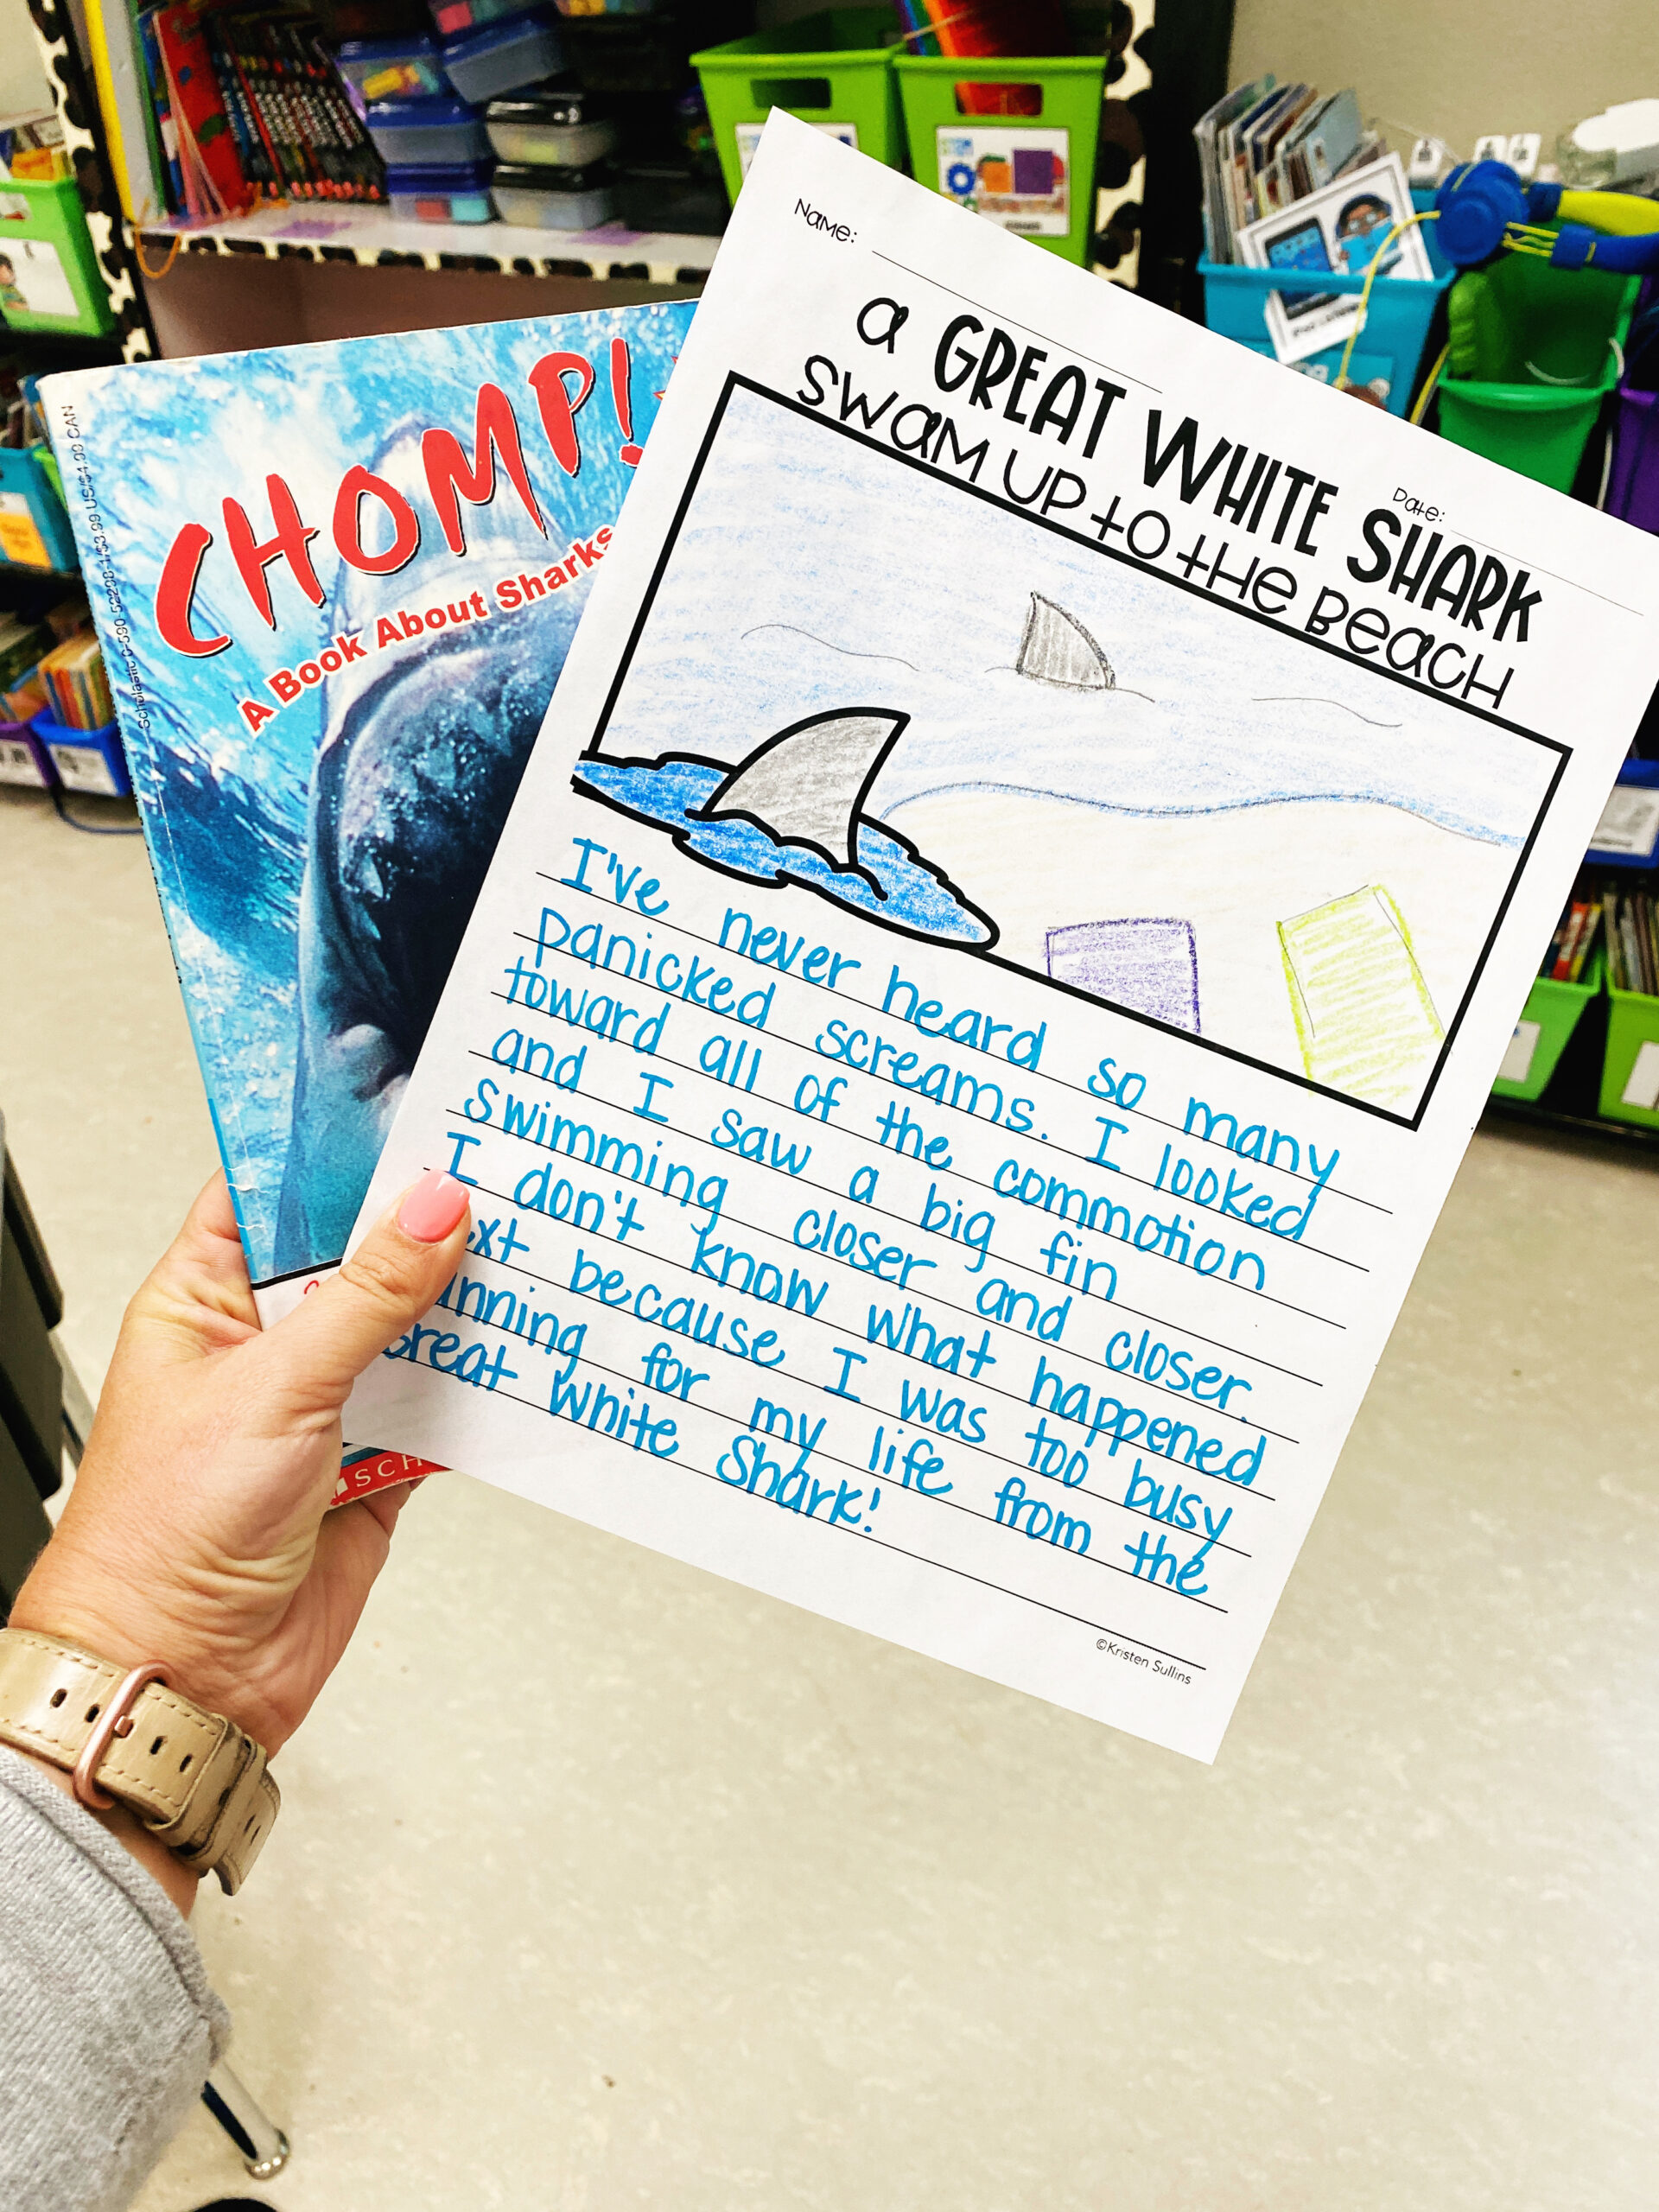 CHOMP!
A Book About Sharks
Scholastic 0-590-52298-1/$3.99 US/$4.99 CAN
SCH
Name:
Date:
a GREAT WHITE SHARK
SWAM UP to tHe BeacH
I've never heard so many
panicked screams. I looked
toward all of the commotion
and I saw a big fin
swimming closer and closer.
I don't know what happened
ext because I was too busy
unning for my life from the
Great White Shark!
©Kristen Sullins